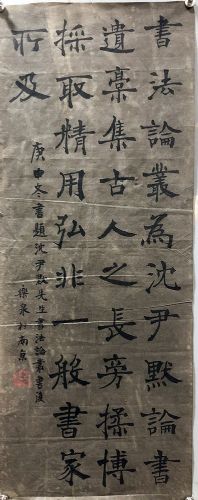 書法論叢為沈尹默論書
遺稾集古人之長旁揉博
採取精用弘非一般書家
所及
庚申冬書題沈尹默先生書法論叢書後
樂泉於南京